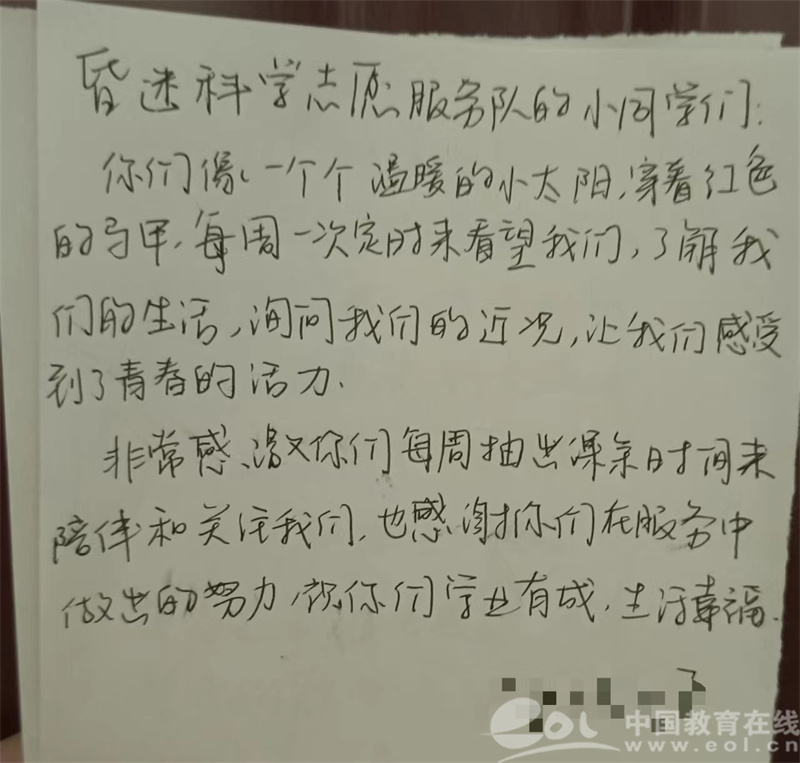 昏迷科学志愿服务队的小同学们:
你们像一个个温暖的小太阳,穿着红色
的马甲,每周一次定时来看望我们,了解我
们的生活,询问我们的近况,让我们感受
到了青春的活力.
非常感激你们每周抽出课余时间来
陪伴和关注我们,也感谢你们在服务中
做出的努力,祝你们学业有成,生活幸福.
eol 中国教育在线
www.eol.cn